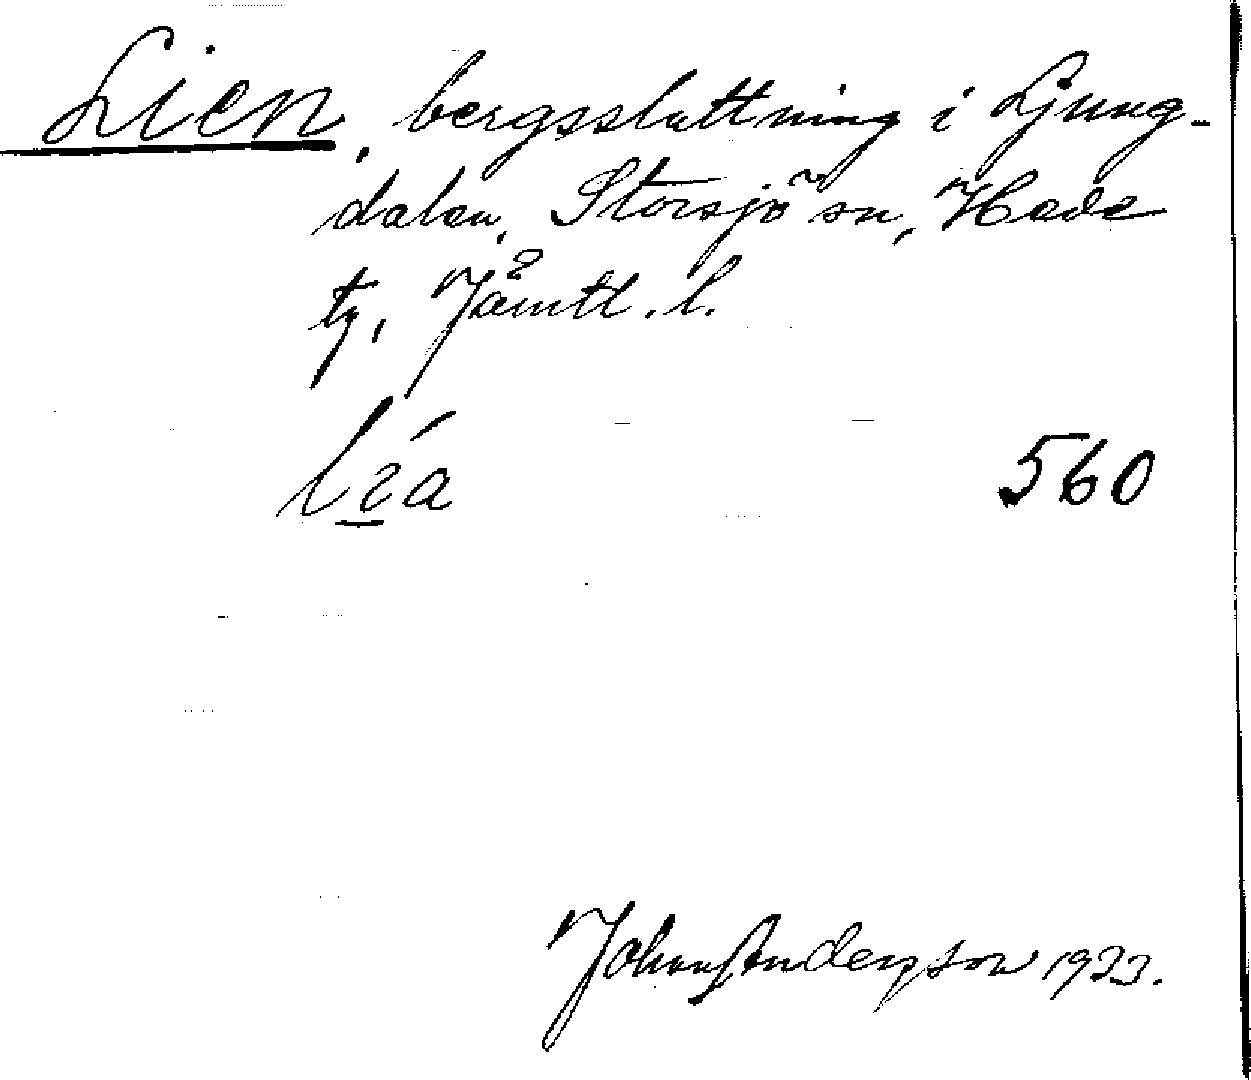 Lien, bergssluttning i Ljung-
dalen, Storsjö sn, Hede
tg, Jämtl. l.
560
Johan Anderson 1923.